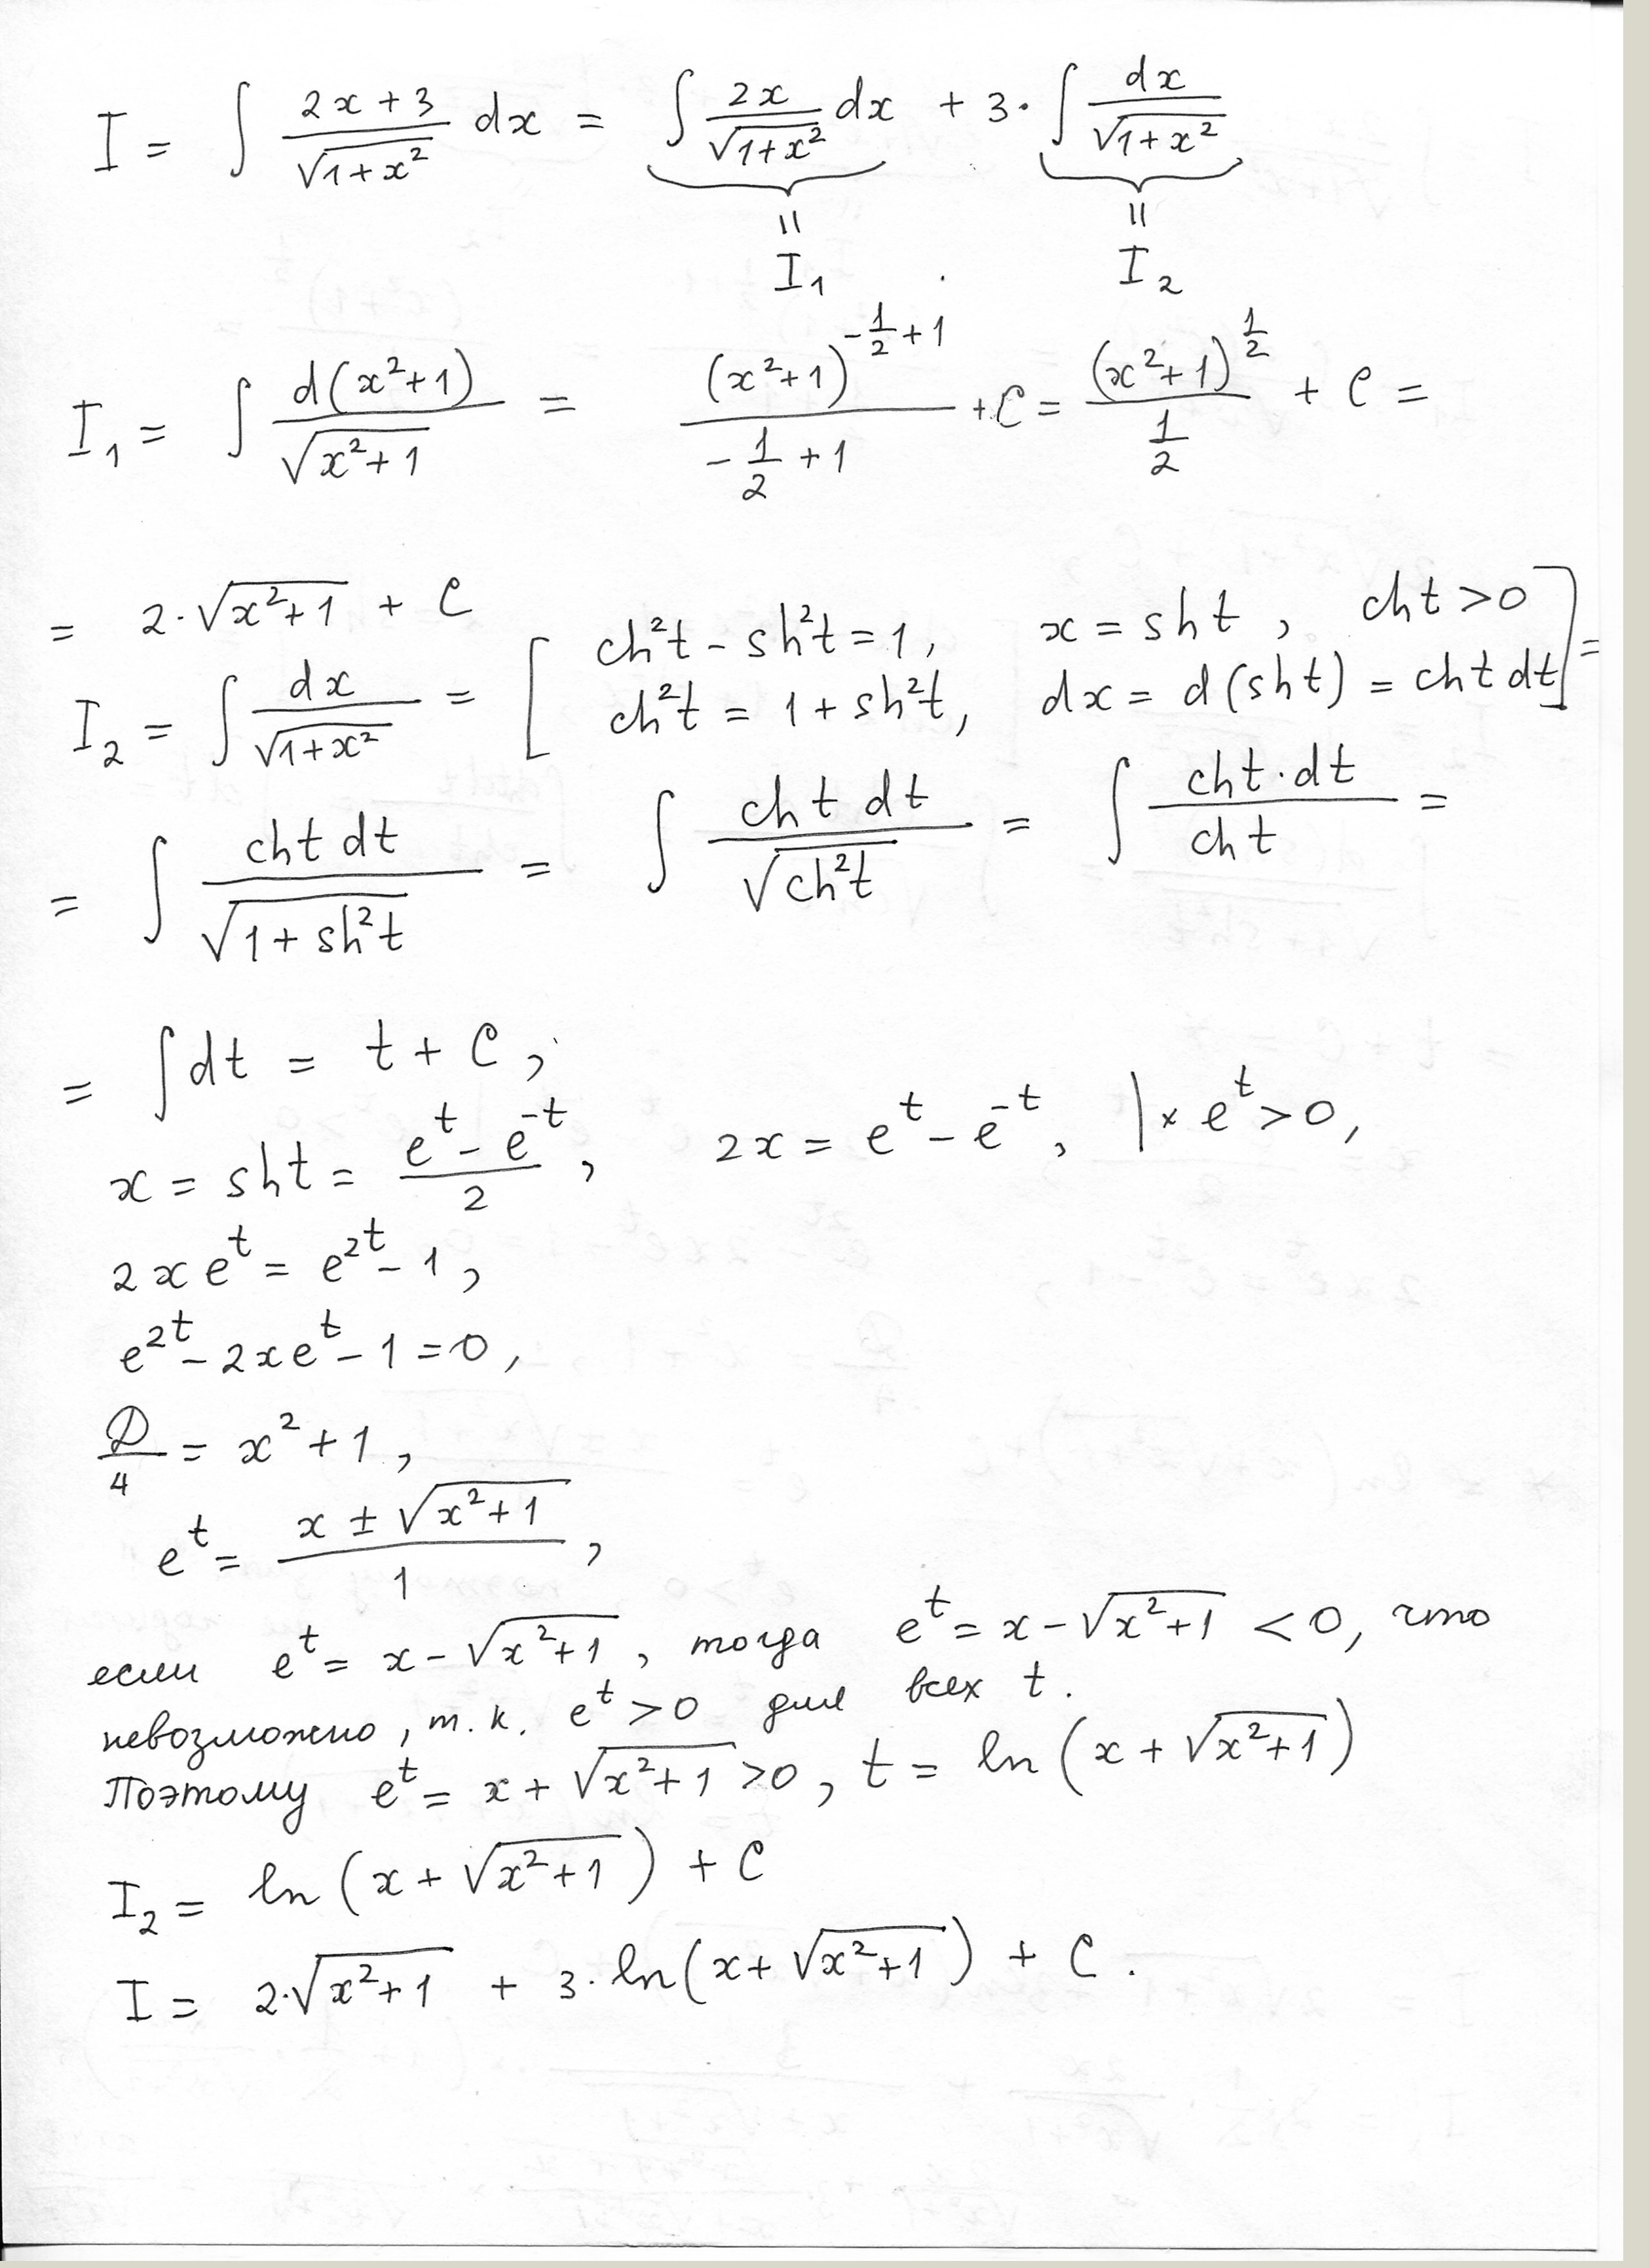 I = ∫ (2x + 3)/√(1+x²) dx = ∫ 2x/√(1+x²) dx + 3 · ∫ dx/√(1+x²)
= =
I₁ I₂
I₁ = ∫ d(x²+1)/√(x²+1) = (x²+1)^(-1/2+1)/(-1/2+1) + C = (x²+1)^(1/2)/(1/2) + C =
= 2·√(x²+1) + C
I₂ = ∫ dx/√(1+x²) = [ ch²t - sh²t = 1, x = sh t, ch t > 0
ch²t = 1 + sh²t, dx = d(sh t) = ch t dt ] =
= ∫ ch t dt/√(1+sh²t) = ∫ ch t dt/√(ch²t) = ∫ ch t·dt/ch t =
= ∫ dt = t + C,
x = sh t = (e^t - e^-t)/2, 2x = e^t - e^-t, | × e^t > 0,
2x e^t = e^2t - 1,
e^2t - 2x e^t - 1 = 0,
D/4 = x² + 1,
e^t = (x ± √(x²+1))/1,
если e^t = x - √(x²+1), тогда e^t = x - √(x²+1) < 0, что
невозможно, т.к. e^t > 0 для всех t.
Поэтому e^t = x + √(x²+1) > 0, t = ln(x + √(x²+1))
I₂ = ln(x + √(x²+1)) + C
I = 2·√(x²+1) + 3·ln(x + √(x²+1)) + C.